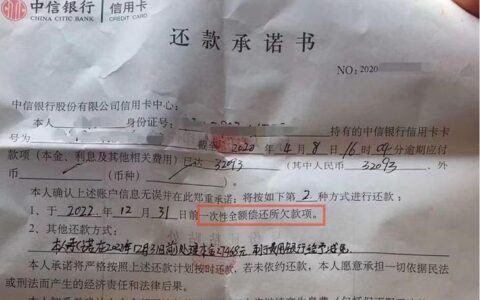 中信银行 信用卡
CHINA CITIC BANK CREDIT CARD
还款承诺书
NO：2020
中信银行股份有限公司信用卡中心：
本人 身份证号： 持有的中信银行信用卡
号为 截至2020年4月8日16时09分逾期应付
款项（本金、利息及其他相关费用）已达32093（其中人民币32093、外
币 币种）。
本人确认上述账户信息无误并在此郑重承诺：将按如下第2种方式进行还款：
1、于2022年12月31日前一次性全额偿还所欠款项。
2、其他还款方式：
本人承诺在2022年12月31日前处理本金27468元
本人承诺将严格按照上述还款计划按时还款，若未依约还款，本人愿意承担一切依民法
或刑法而产生的经济责任和法律后果。